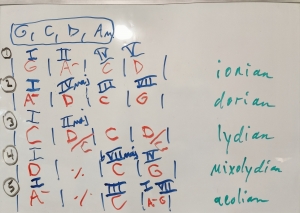 G, C, D, Am
I II IV V
1 G | A- | C | D | ionian
I IVmaj III VII
2 A- | D | C | G | dorian
I IImaj
3 C | D/C | C | D/C | lydian
I bVIImaj IV
4 D | ٪ | C | G | mixolydian
I III I VII
5 A- | ٪ | C | A- G | aeolian